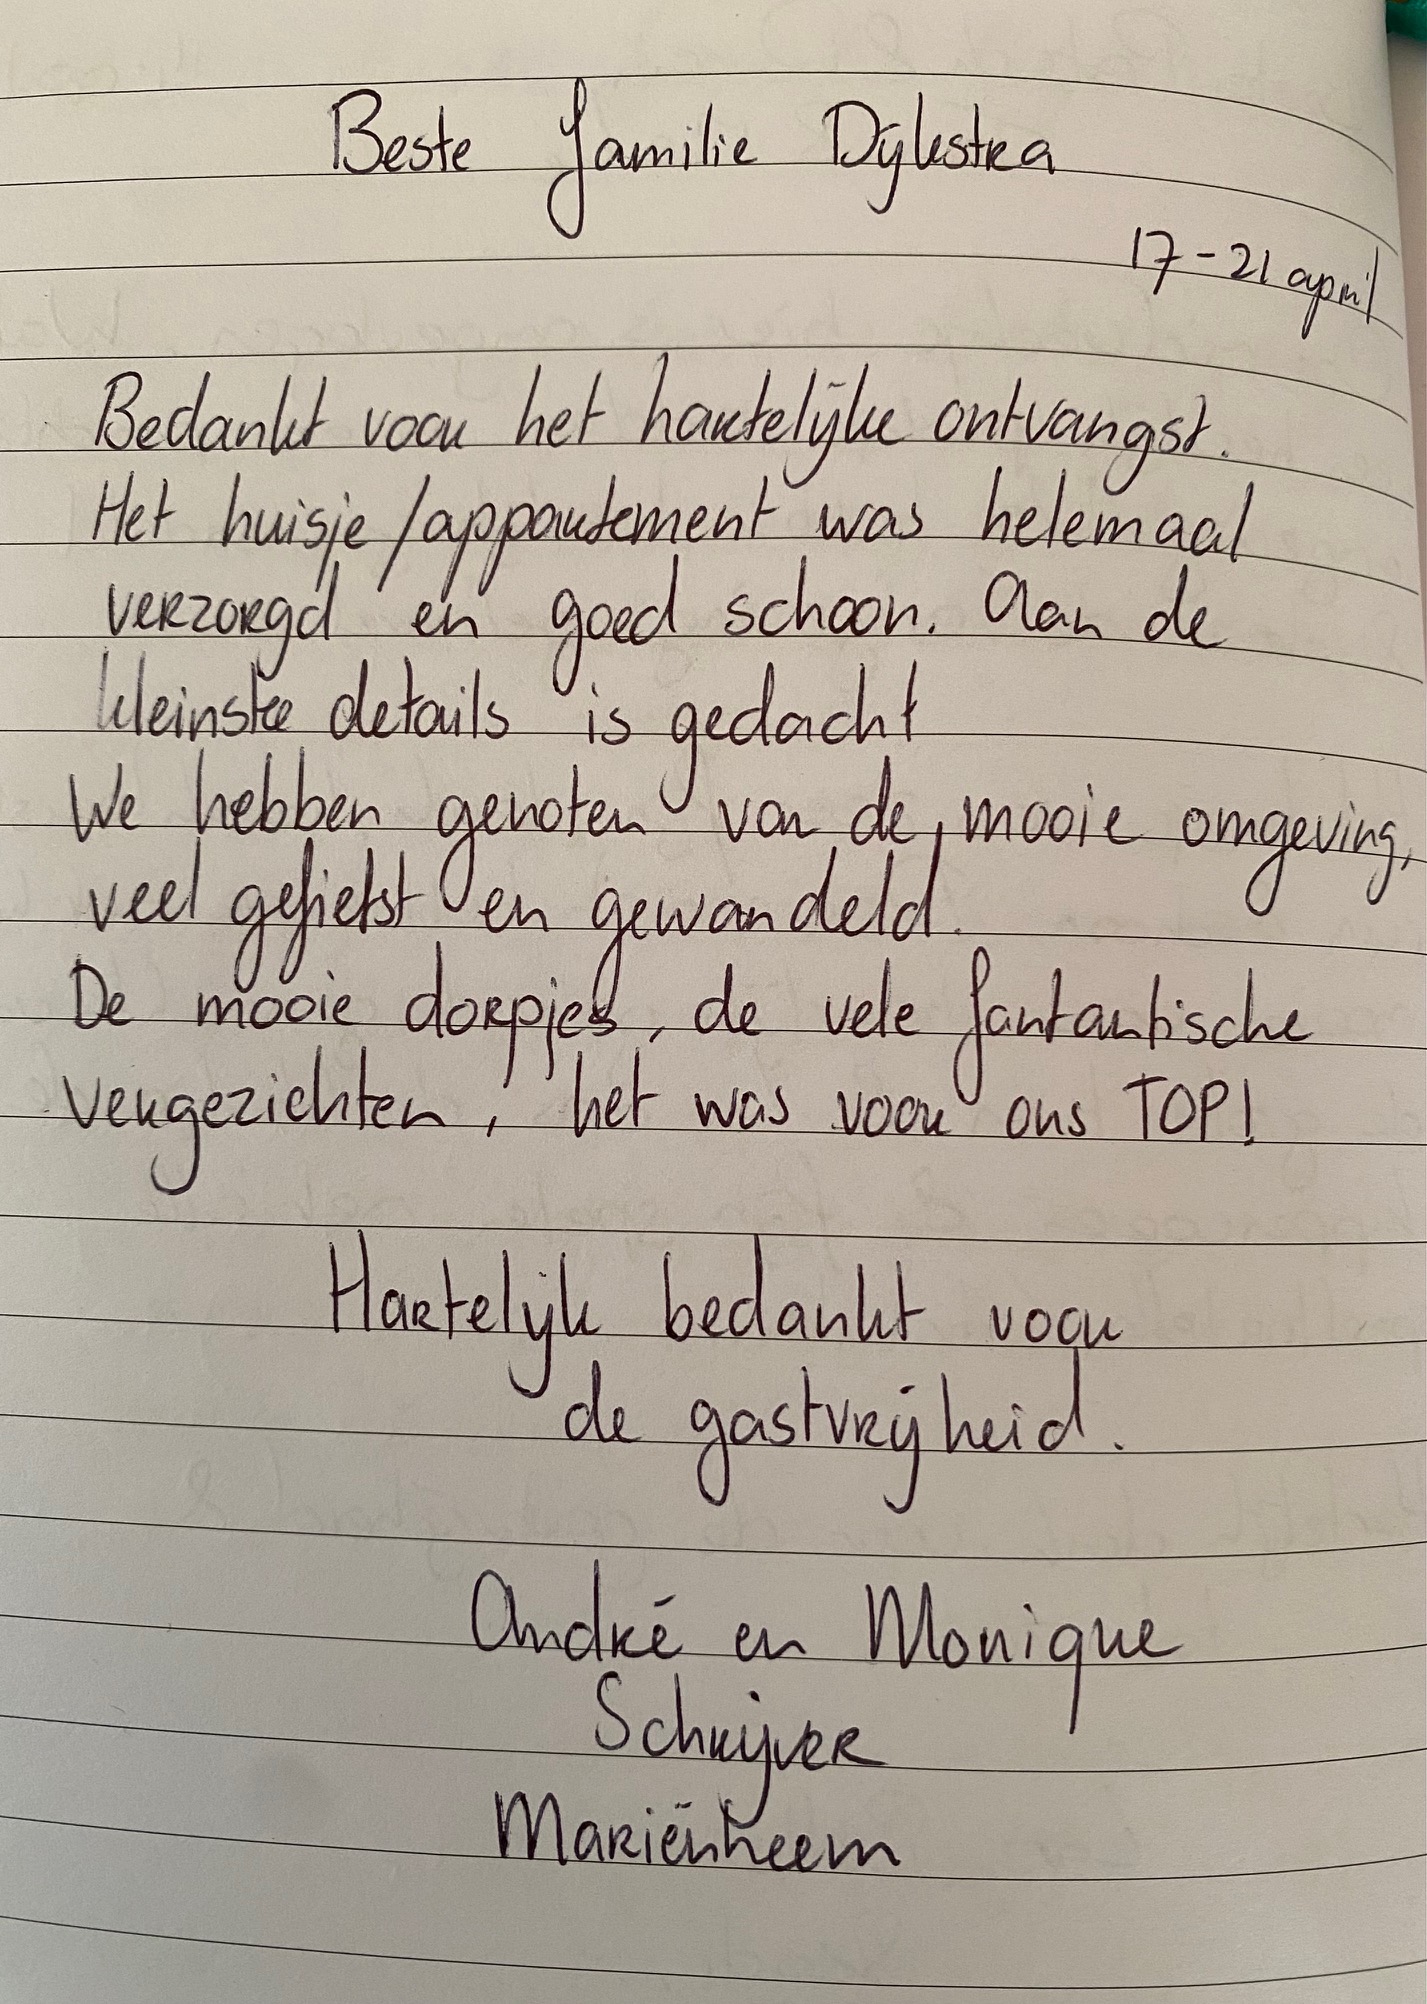 Beste familie Dijkstra
17-21 april
Bedankt voor het hartelijke ontvangst.
Het huisje/appartement was helemaal
verzorgd en goed schoon. Aan de
kleinste details is gedacht
We hebben genoten van de mooie omgeving,
veel gefietst en gewandeld.
De mooie dorpjes, de vele fantantische
vergezichten, het was voor ons TOP!
Hartelijk bedankt voor
de gastvrijheid.
André en Monique
Schrijver
Mariënheem